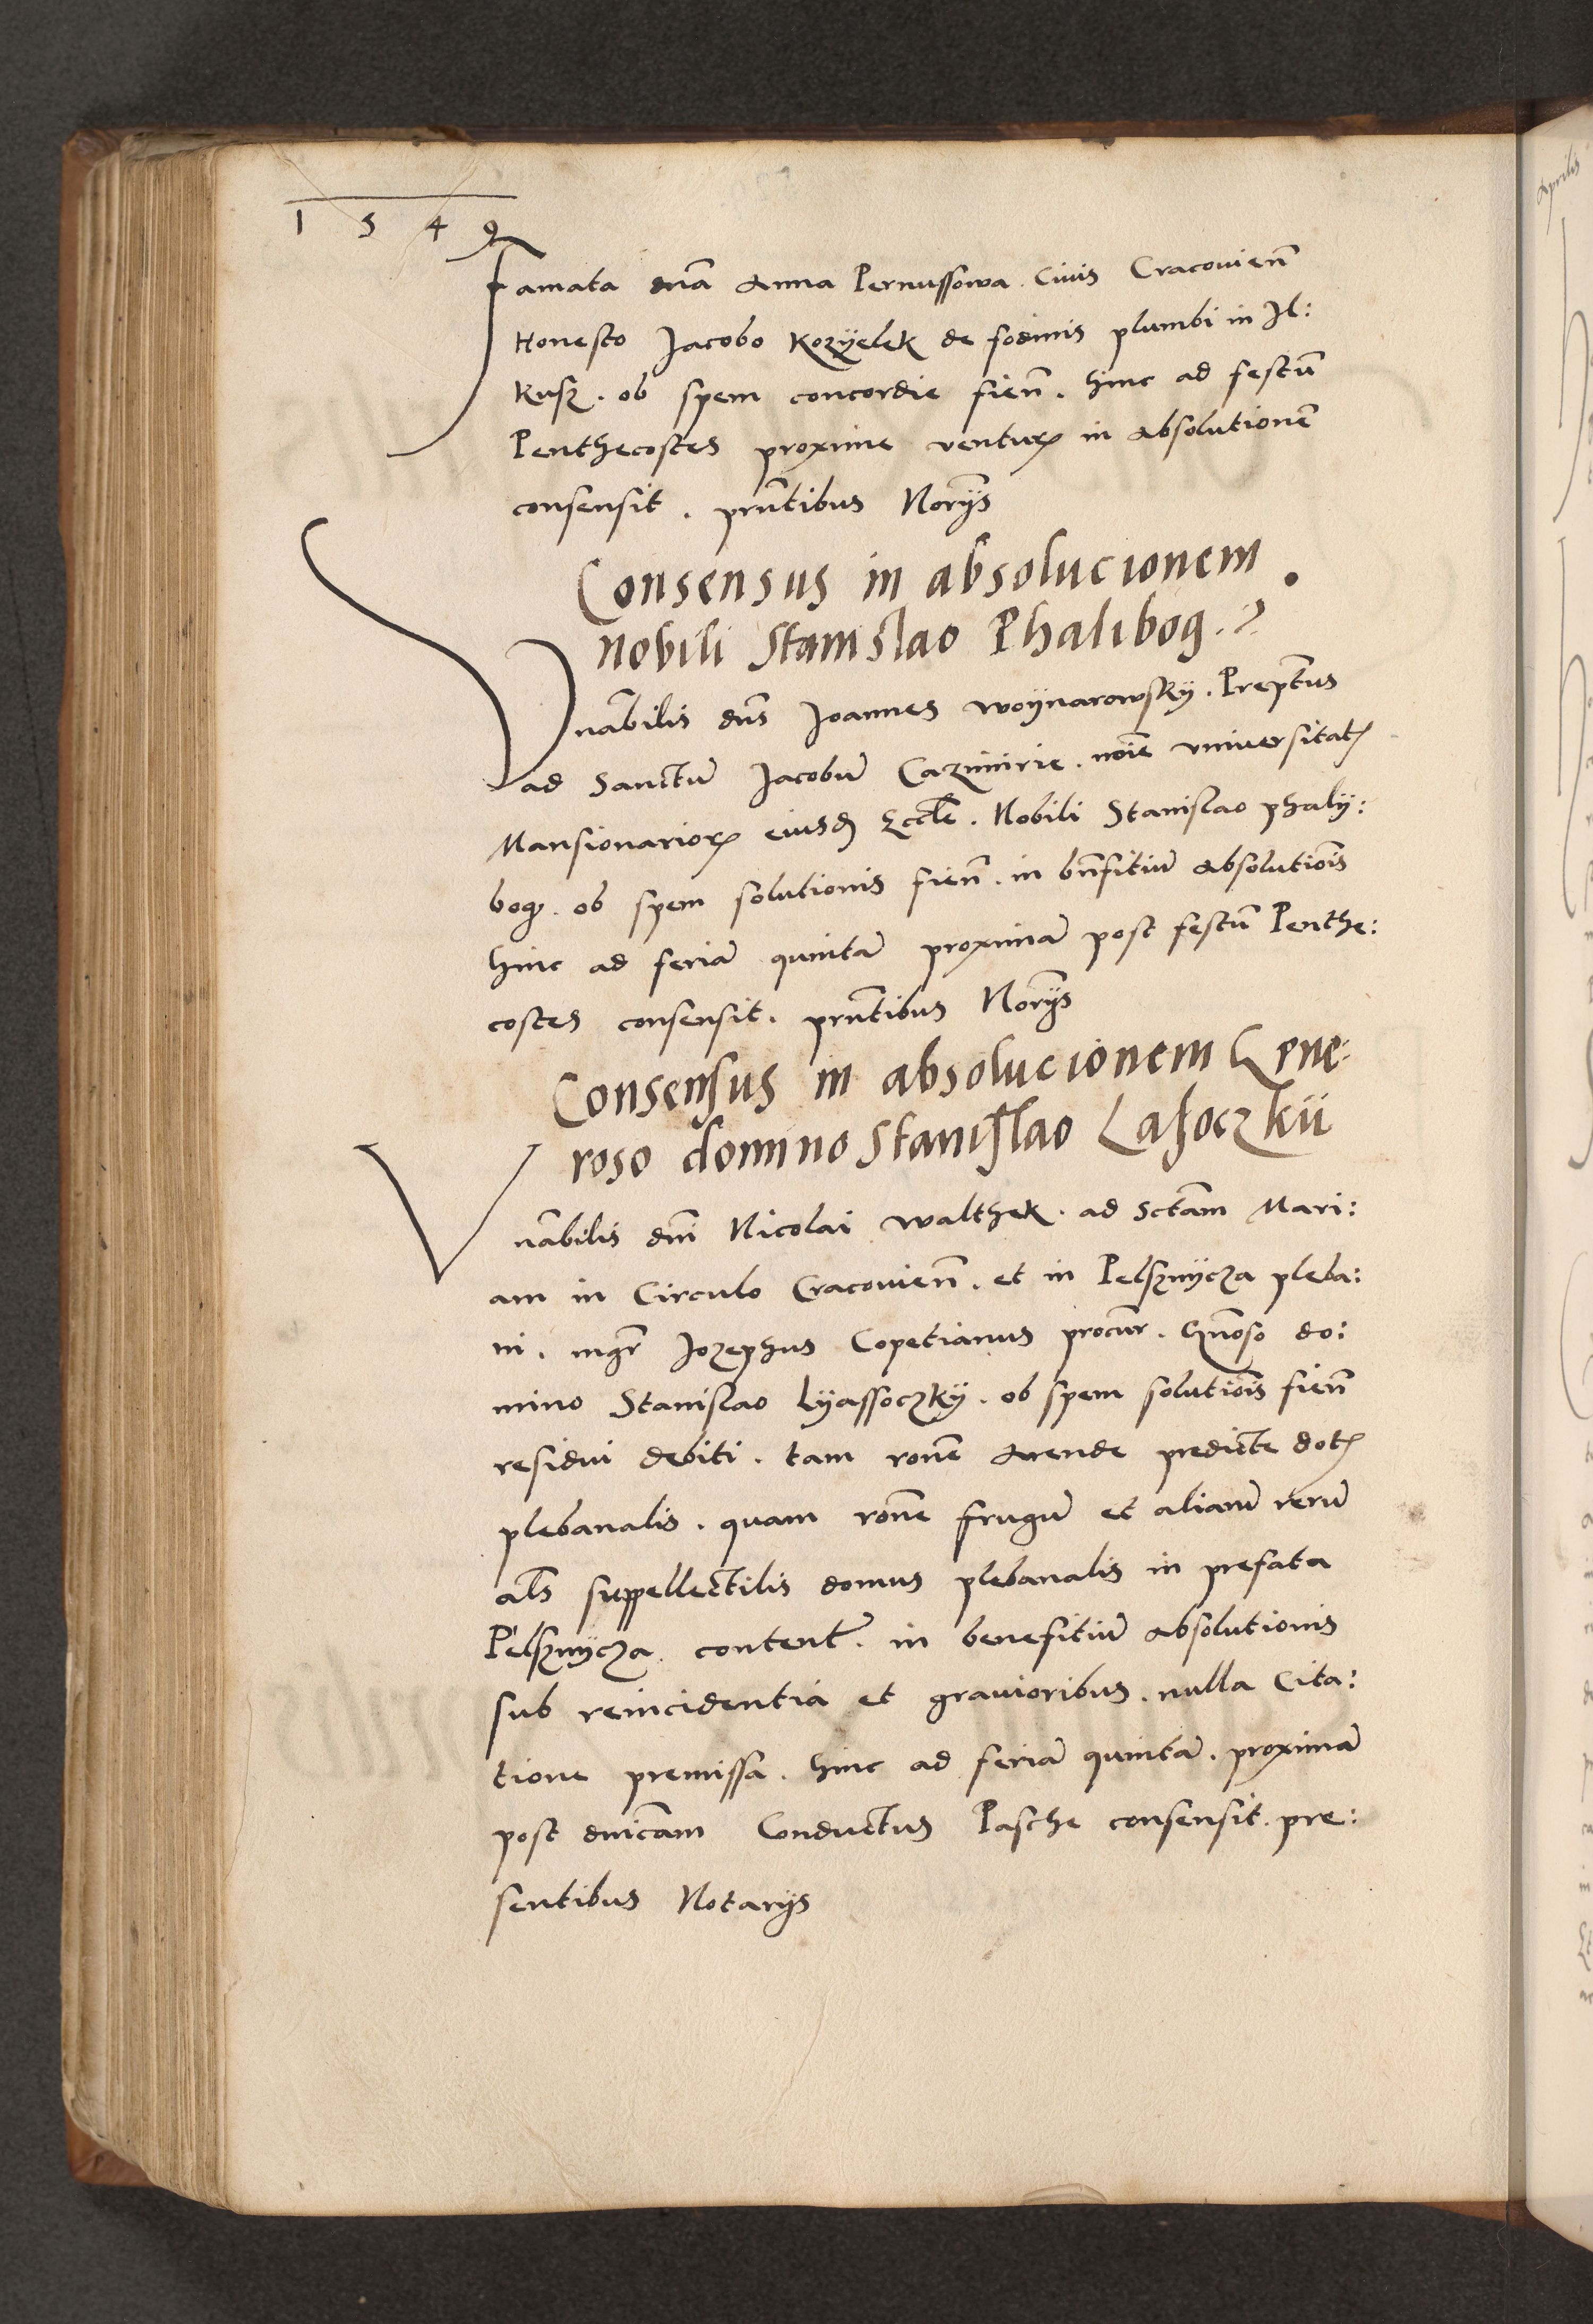 1 5 4 9
Famata dnā Anna Pernussowa. Ciuis Cracouien̄
Honesto Jacobo Kozÿelek de fodinis plumbi in Jl:
kusz. ob spem concordie fien̄. hinc ad festū
Penthecostes proxime ventur in absolutionē
consensit. prn̄tibus Norÿs
Consensus in absolucionem.
nobili Stanislao Phalibog.
Vnābilis dn̄s Joannes woÿnarowskÿ. Prepn̄tus
ad Sanctū Jacobū Cazimirie. noīe vniuersitat
Mansionarior eiusd Eccl̄e. Nobili Stanislao phalÿ:
bog. ob spem solutionis fien̄. in bn̄fitiū absolutiōis
hinc ad feriā quintā proximā post festū Penthe:
costes consensit. prn̄tibus Norÿs
Consensus in absolucionem Gene:
roso domino Stanislao Lasoczkii
Vnābilis dn̄i Nicolai walthek. ad Sctām Mari:
am in Circulo Cracouien̄. et in Pelsznÿcza pleba:
ni. mgr̄ Jozephus Copetianus procur̄. Gn̄oso do:
mino Stanislao Lÿassoczkÿ. ob spem solutiōis fien̄
residui debiti. tam rōne Arende predicte dot
plebanalis. quam rōne frugū et aliarū rerū
al̄s suppellectilis domus plebanalis in prefata
Pelsznÿcza. content̄. in benefitiū absolutionis
sub reincidentia et grauioribus. nulla Cita:
tione premissa. hinc ad feriā quintā. proximā
post dnīcam Conductus Pasche consensit. pre:
sentibus Notarÿs
Aprilis